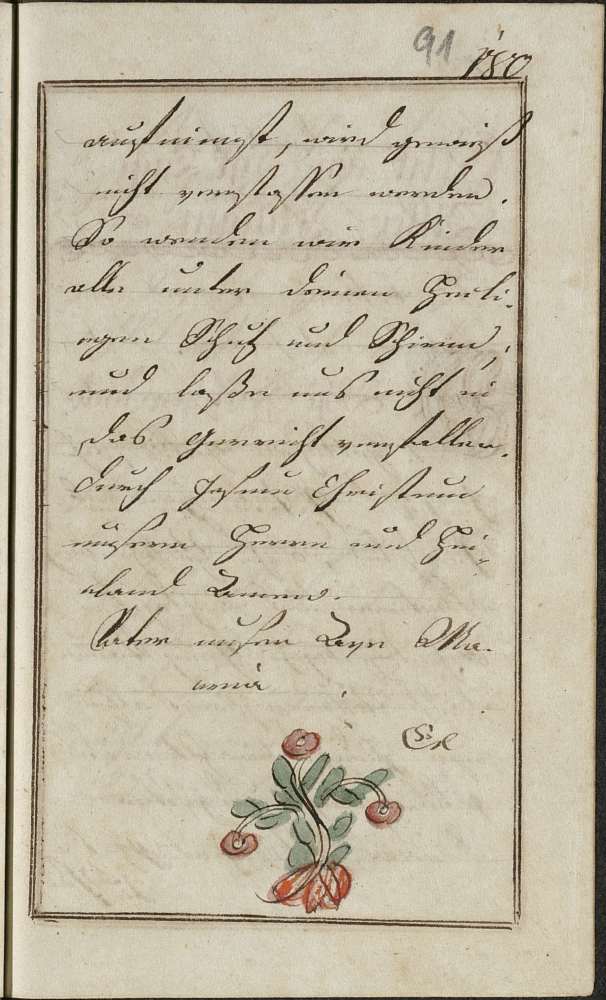 91 180
aufnimst, wird gewiß
nicht verstossen werden.
So werden wir Kinder
alle unter deinen Heili-
gen Schutz und Schirm,
und lasse uns nicht in
das Gericht verfallen.
durch Jesum Christum
unsern Herrn und Hei-
land Amen.
Vater unser Ave Ma-
ria